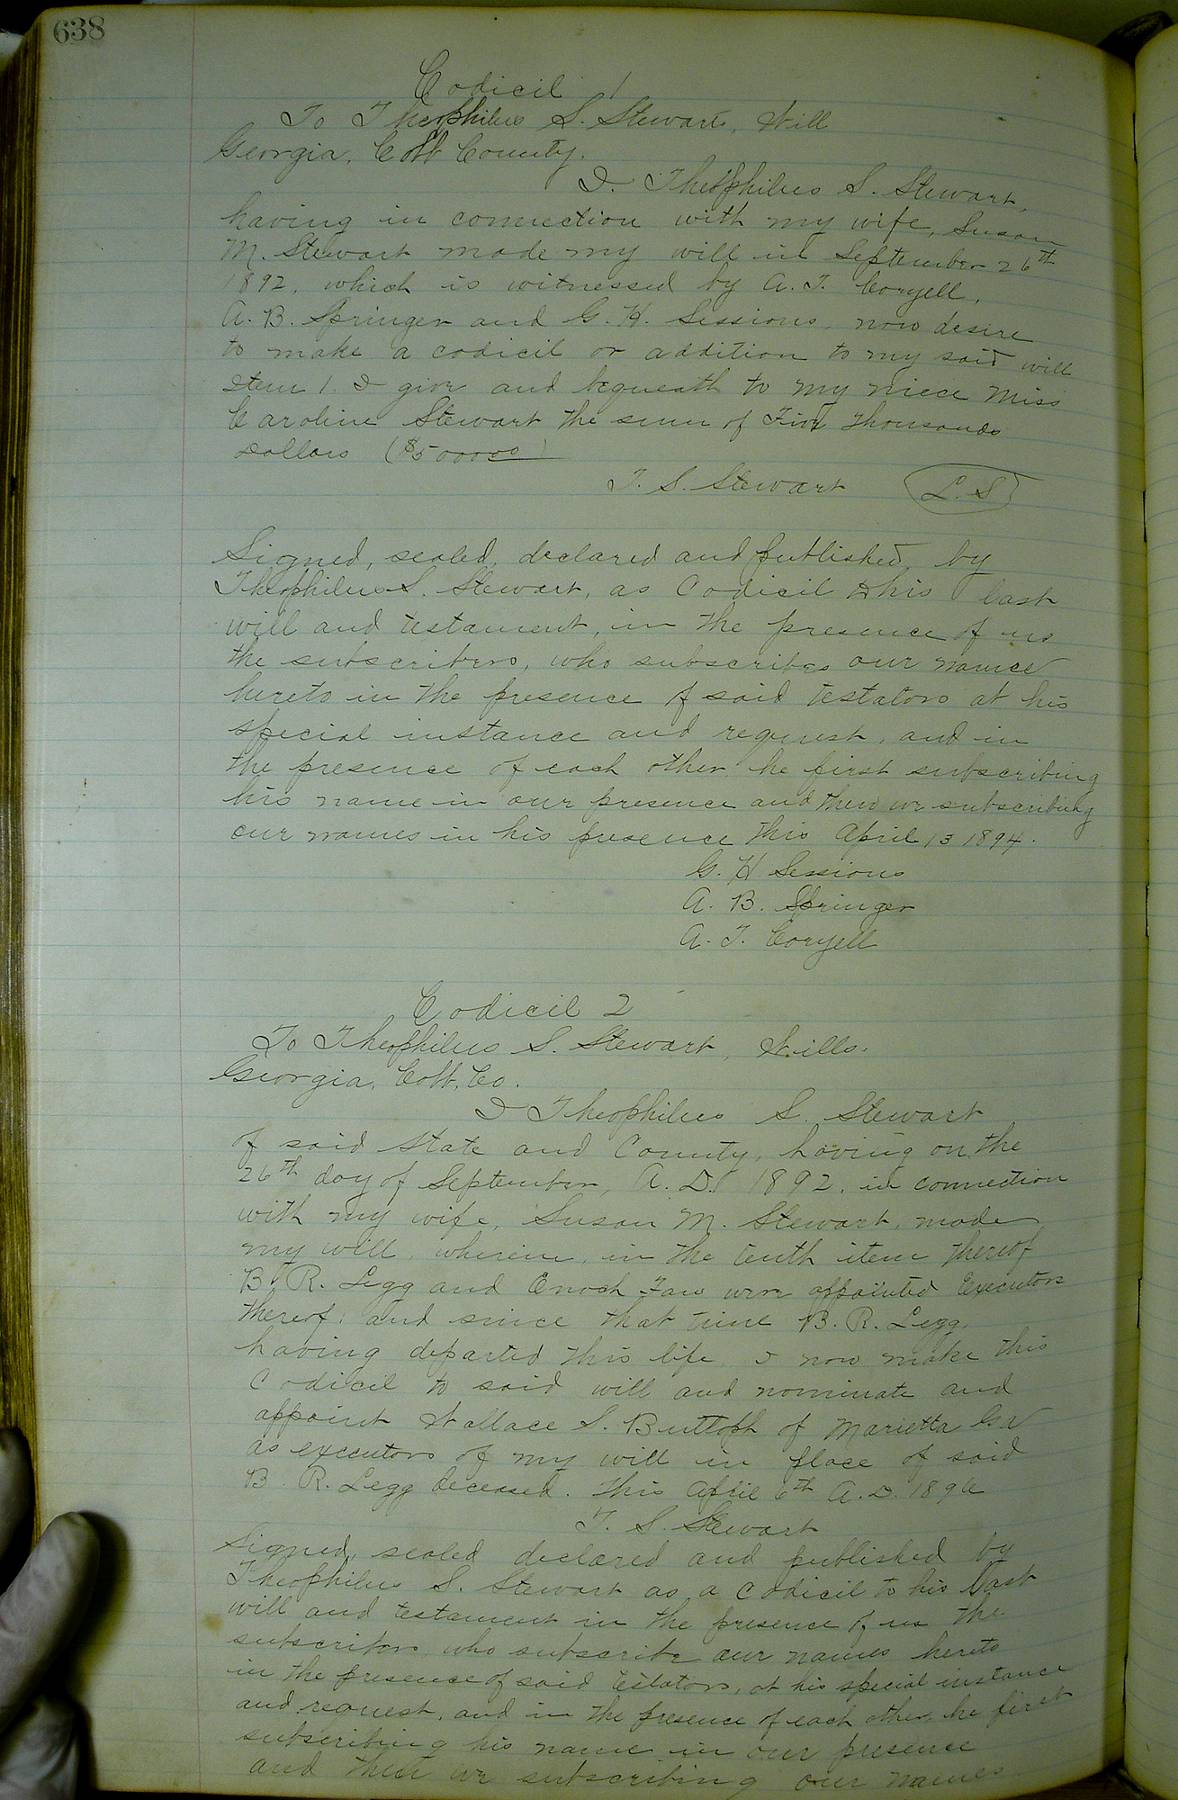 638
Codicil 1
To Theophilus S. Stewart, Will
Georgia, Cobb County.
I. Theophilus S. Stewart,
having in connection with my wife, Susan
M. Stewart made my will in September 26th
1892, which is witnessed by A. T. Coryell,
A. B. Springer and G. H. Sessions, now desire
to make a codicil or addition to my said will
Item 1. I give and bequeath to my niece Miss
Caroline Stewart the sum of Five thousands
Dollars ($5000.00)
T. S. Stewart (L. S)
Signed, sealed, declared and published, by
Theophilus S. Stewart, as Codicil to his last
will and testament, in the presence of us
the subscribers, who subscribes our names
hereto in the presence of said testators at his
special instance and request, and in
the presence of each other he first subscribing
his name in our presence and then we subscribing
our names in his presence this April 13 1894.
G. H Sessions
A. B. Springer
A. T. Coryell
Codicil 2
To Theophilus S. Stewart, Wills.
Georgia, Cobb, Co.
I Theophilus S. Stewart
of said State and County, having on the
26th day of September, A. D. 1892, in connection
with my wife, Susan M. Stewart, made
my will, wherein, in the tenth item thereof
B. R. Legg and Enoch Faw were appointed Executors
thereof, and since that time B. R. Legg,
having departed this life I now make this
Codicil to said will and nominate and
appoint Wallace S. Buttolph of Marietta Ga
as executors of my will in place of said
B. R. Legg deceased. This April 6th A. D. 1896
T. S. Stewart
Signed, sealed declared and published by
Theophilus S. Stewart as a codicil to his last
will and testament in the presence of us the
subscribers who subscribe our names hereto
in the presence of said testators, at his special instance
and request, and in the presence of each other, he first
subscribing his name in our presence
and then we subscribing our names